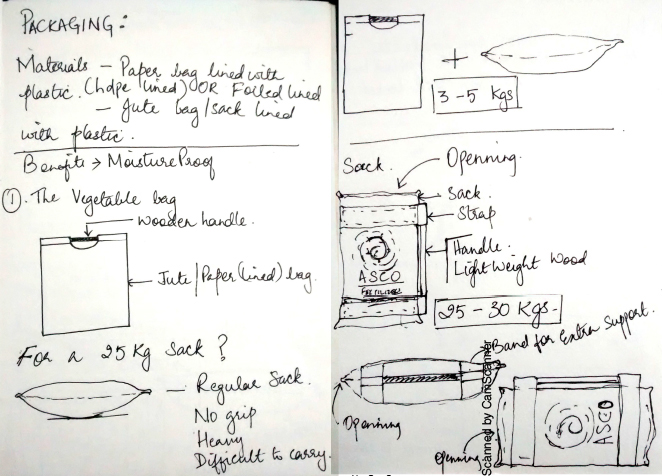 PACKAGING:
Materials — Paper bag lined with
plastic. (hdpe lined) OR Foiled lined
— Jute bag/sack lined
with plastic.
Benefits → Moisture Proof
①. The Vegetable bag
wooden handle.
Jute/Paper(lined) bag.
For a 25 Kg Sack?
Regular Sack.
No grip
Heavy
Difficult to carry.
+
3-5 Kgs
Sack.
Openning.
Sack.
Strap
Handle.
Light Weight Wood
ASCO
FERTILIZER
25-30 Kgs.
Band for Extra Support.
Openning
Openning
ASCO
Scanned by CamScanner